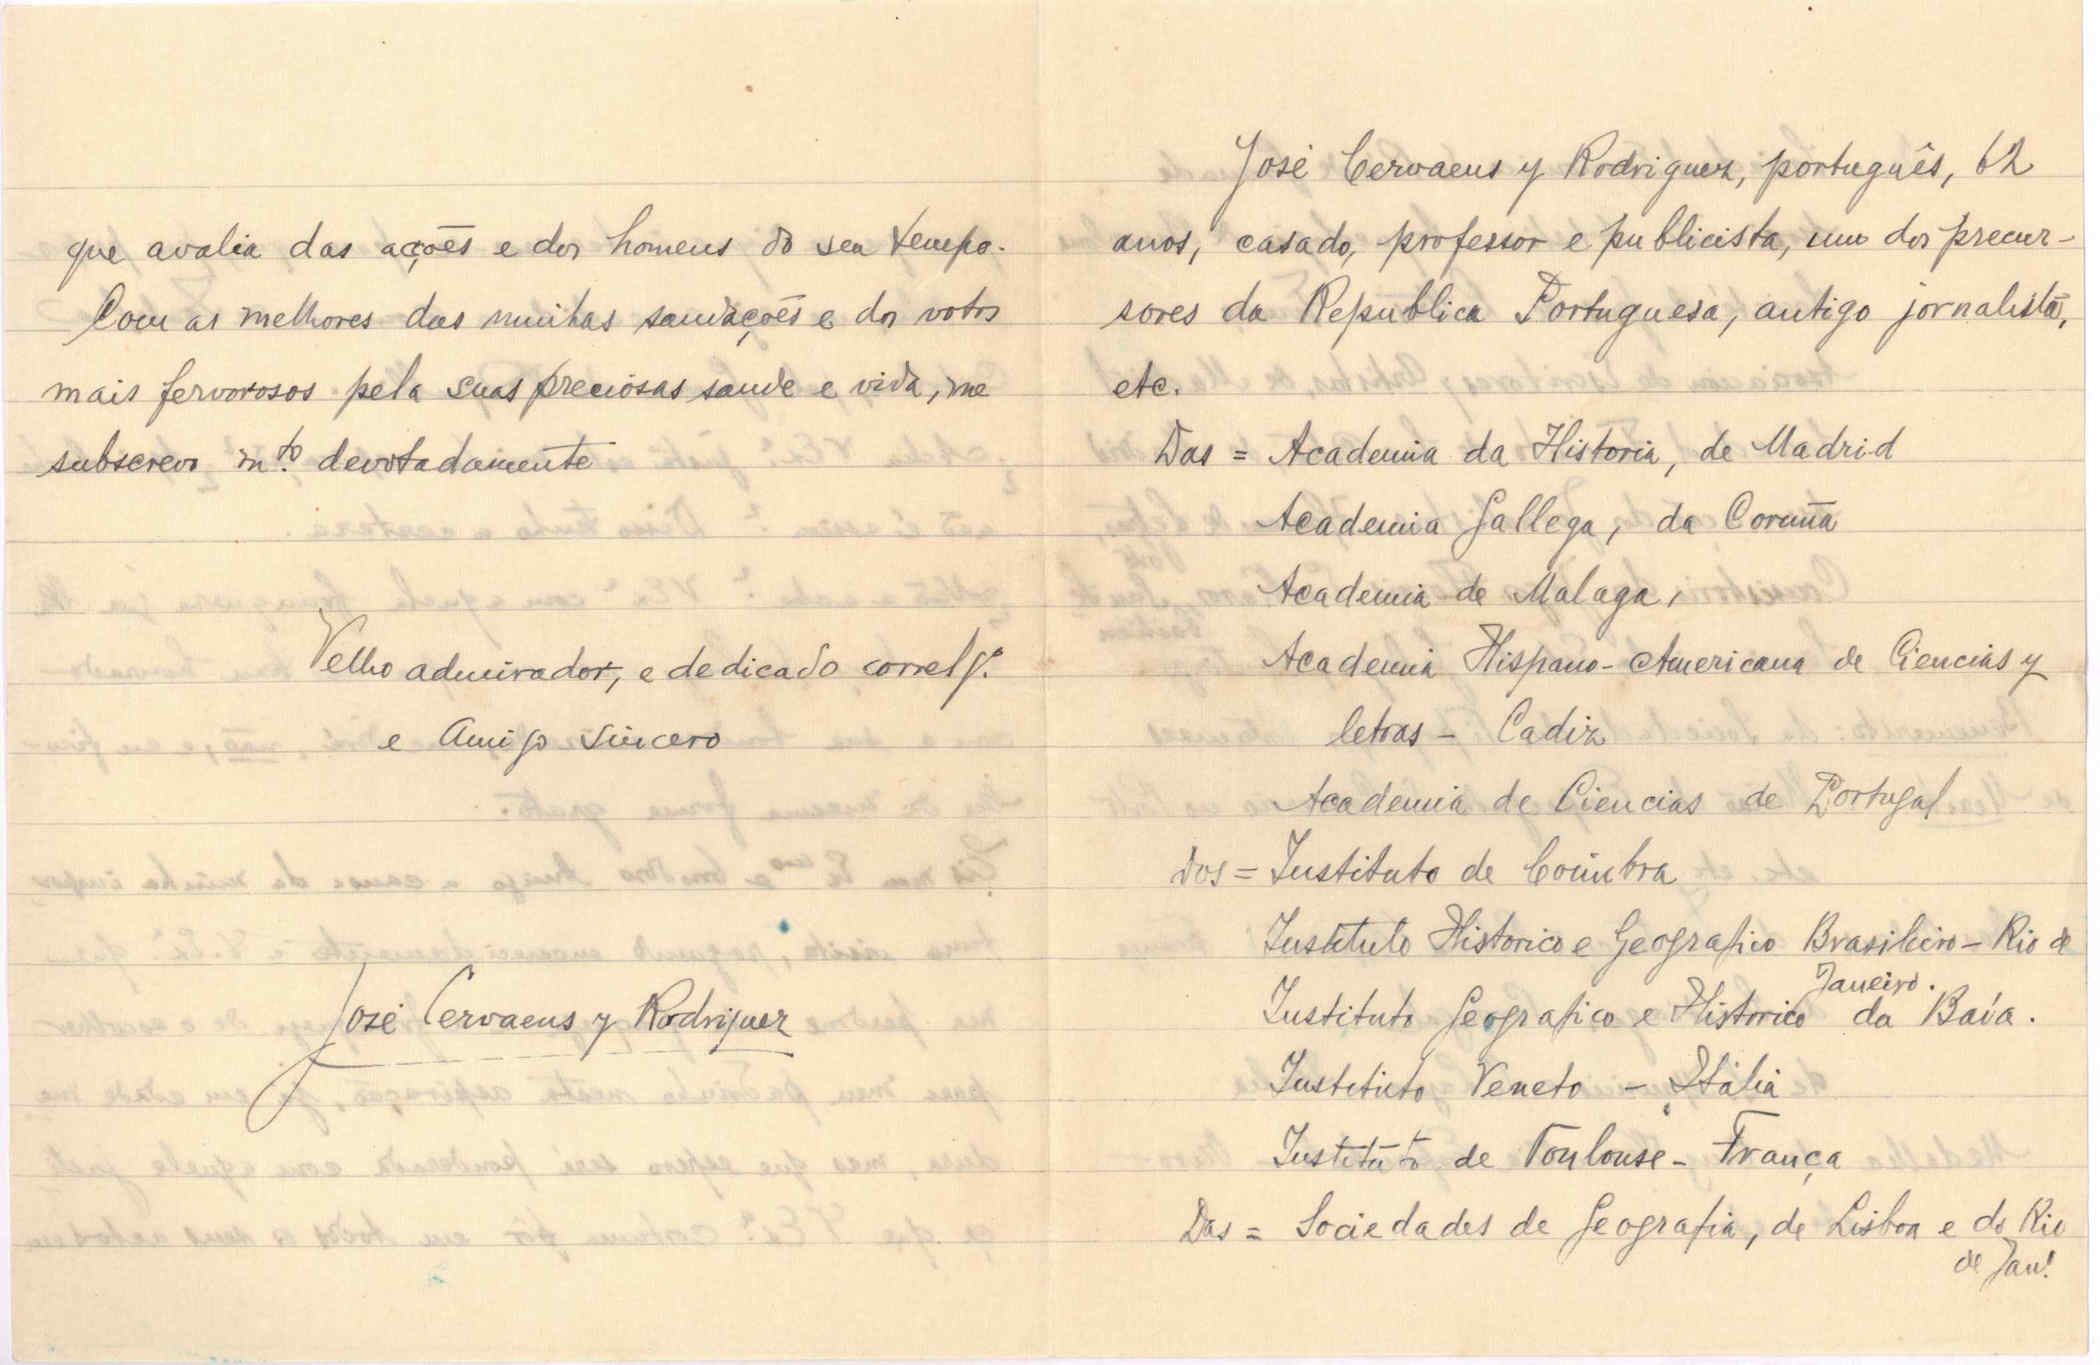 que avalia das ações e dos homens do seu tempo.
Com as melhores das minhas saudações e dos votos
mais fervorosos pela suas preciosas saude e vida, me
subscrevo m.to devotadamente
Velho admirador, e dedicado
e Amigo sincero
José Cervaens y Rodriguez
José Cervaens y Rodriguez, português, 62
anos, casado, professor e publicista, um dos precur-
sores da Republica Portuguesa, antigo jornalista,
etc.
Das = Academia da Historia, de Madrid
Academia Gallega, da Coruña
Academia de Malaga,
Academia Hispano-Americana de Ciencias y
letras - Cadiz
Academia de Ciencias de Portugal
Dos = Instituto de Coimbra
Instituto Historico e Geografico Brasileiro - Rio de
Janeiro.
Instituto Geografico e Historico da Baía.
Instituto Veneto - Itália
Instituto de Toulouse - França
Das = Sociedades de Geografia, de Lisboa e do Rio
de Jan.º